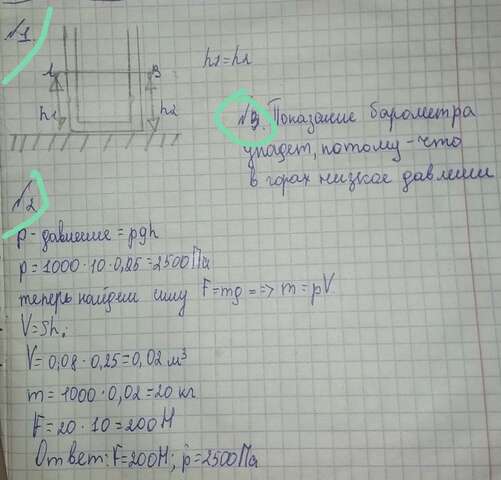 №1.
A B
h1 h2
h1=h2
№3. Показание барометра
упадет, потому-что
в горах низкое давлении
№2
p - давление = pgh
p = 1000 · 10 · 0,25 = 2500 Па
теперь найдем силу F=mg = => m = pV
V=Sh;
V= 0,08 · 0,25 = 0,02 м³
m = 1000 · 0,02 = 20 кг
F = 20 · 10 = 200 Н
Ответ: F=200Н; p=2500Па